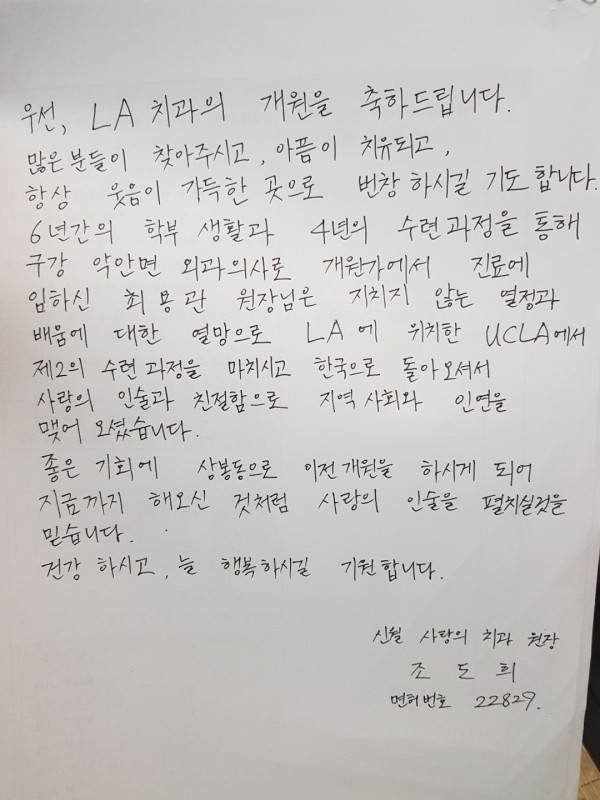 우선, LA 치과의 개원을 축하드립니다.
많은 분들이 찾아주시고, 아픔이 치유되고,
항상 웃음이 가득한 곳으로 번창 하시길 기도 합니다.
6년간의 학부 생활과 4년의 수련 과정을 통해
구강 악안면 외과의사로 개원가에서 진료에
임하신 최용관 원장님은 지치지 않는 열정과
배움에 대한 열망으로 LA에 위치한 UCLA에서
제2의 수련 과정을 마치시고 한국으로 돌아오셔서
사랑의 인술과 친절함으로 지역 사회와 인연을
맺어 오셨습니다.
좋은 기회에 상봉동으로 이전 개원을 하시게 되어
지금까지 해오신 것처럼 사랑의 인술을 펼치실것을
믿습니다.
건강 하시고, 늘 행복하시길 기원합니다.
신월 사랑의 치과 원장
조 도 희
면허번호 22829.